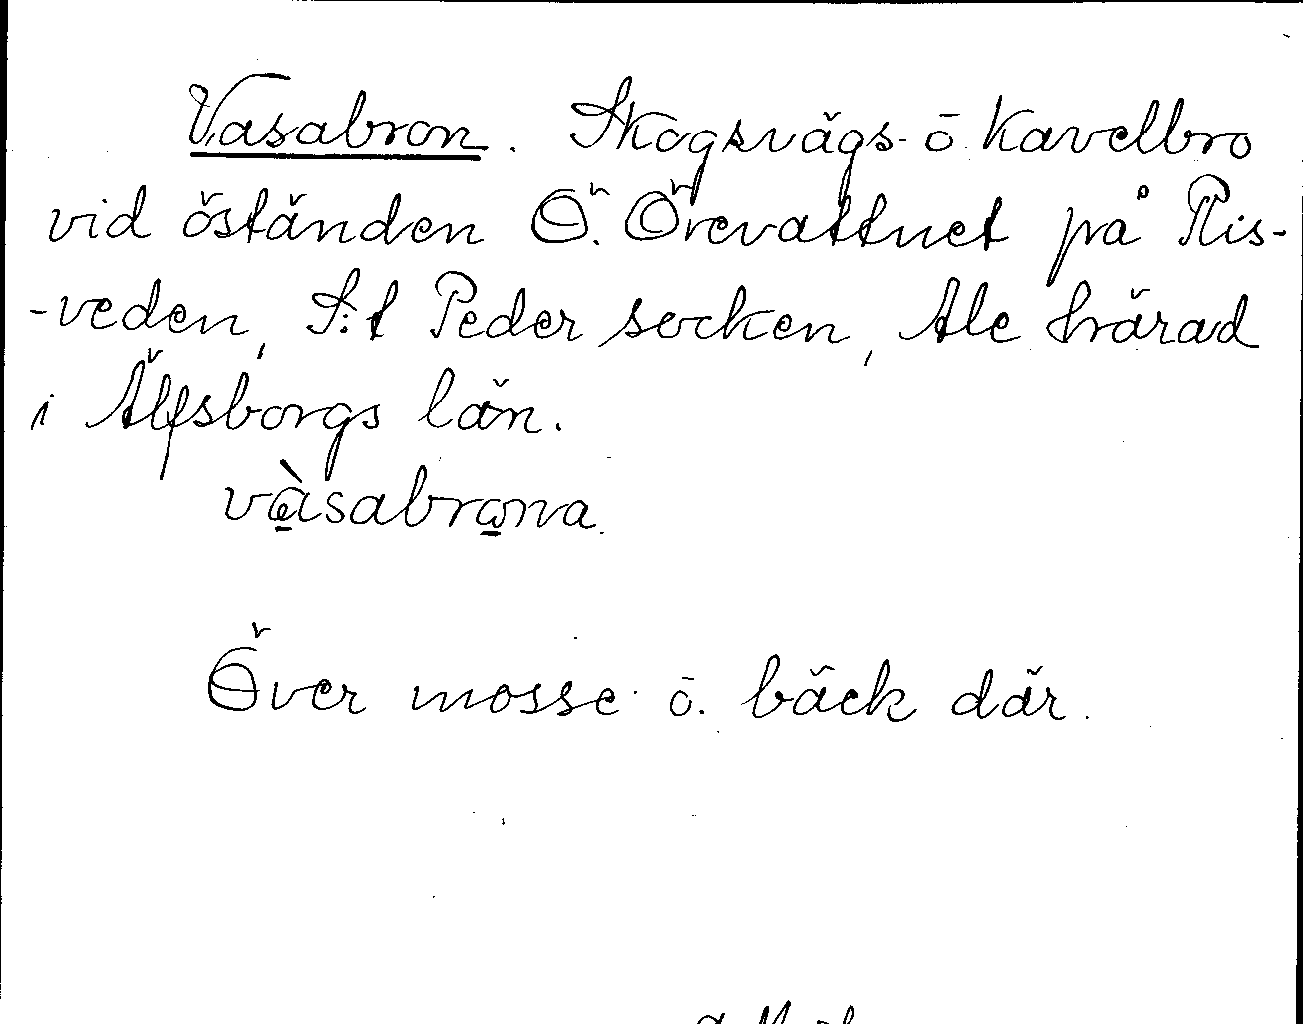 Vasabron. Skogsvägs- ō kavelbro
vid öständen Ö. Örevattnet på Ris-
-veden, S:t Peder socken, Ale härad
i Älfsborgs län.
và̱sabro̱na.
Över mosse ō. bäck där.